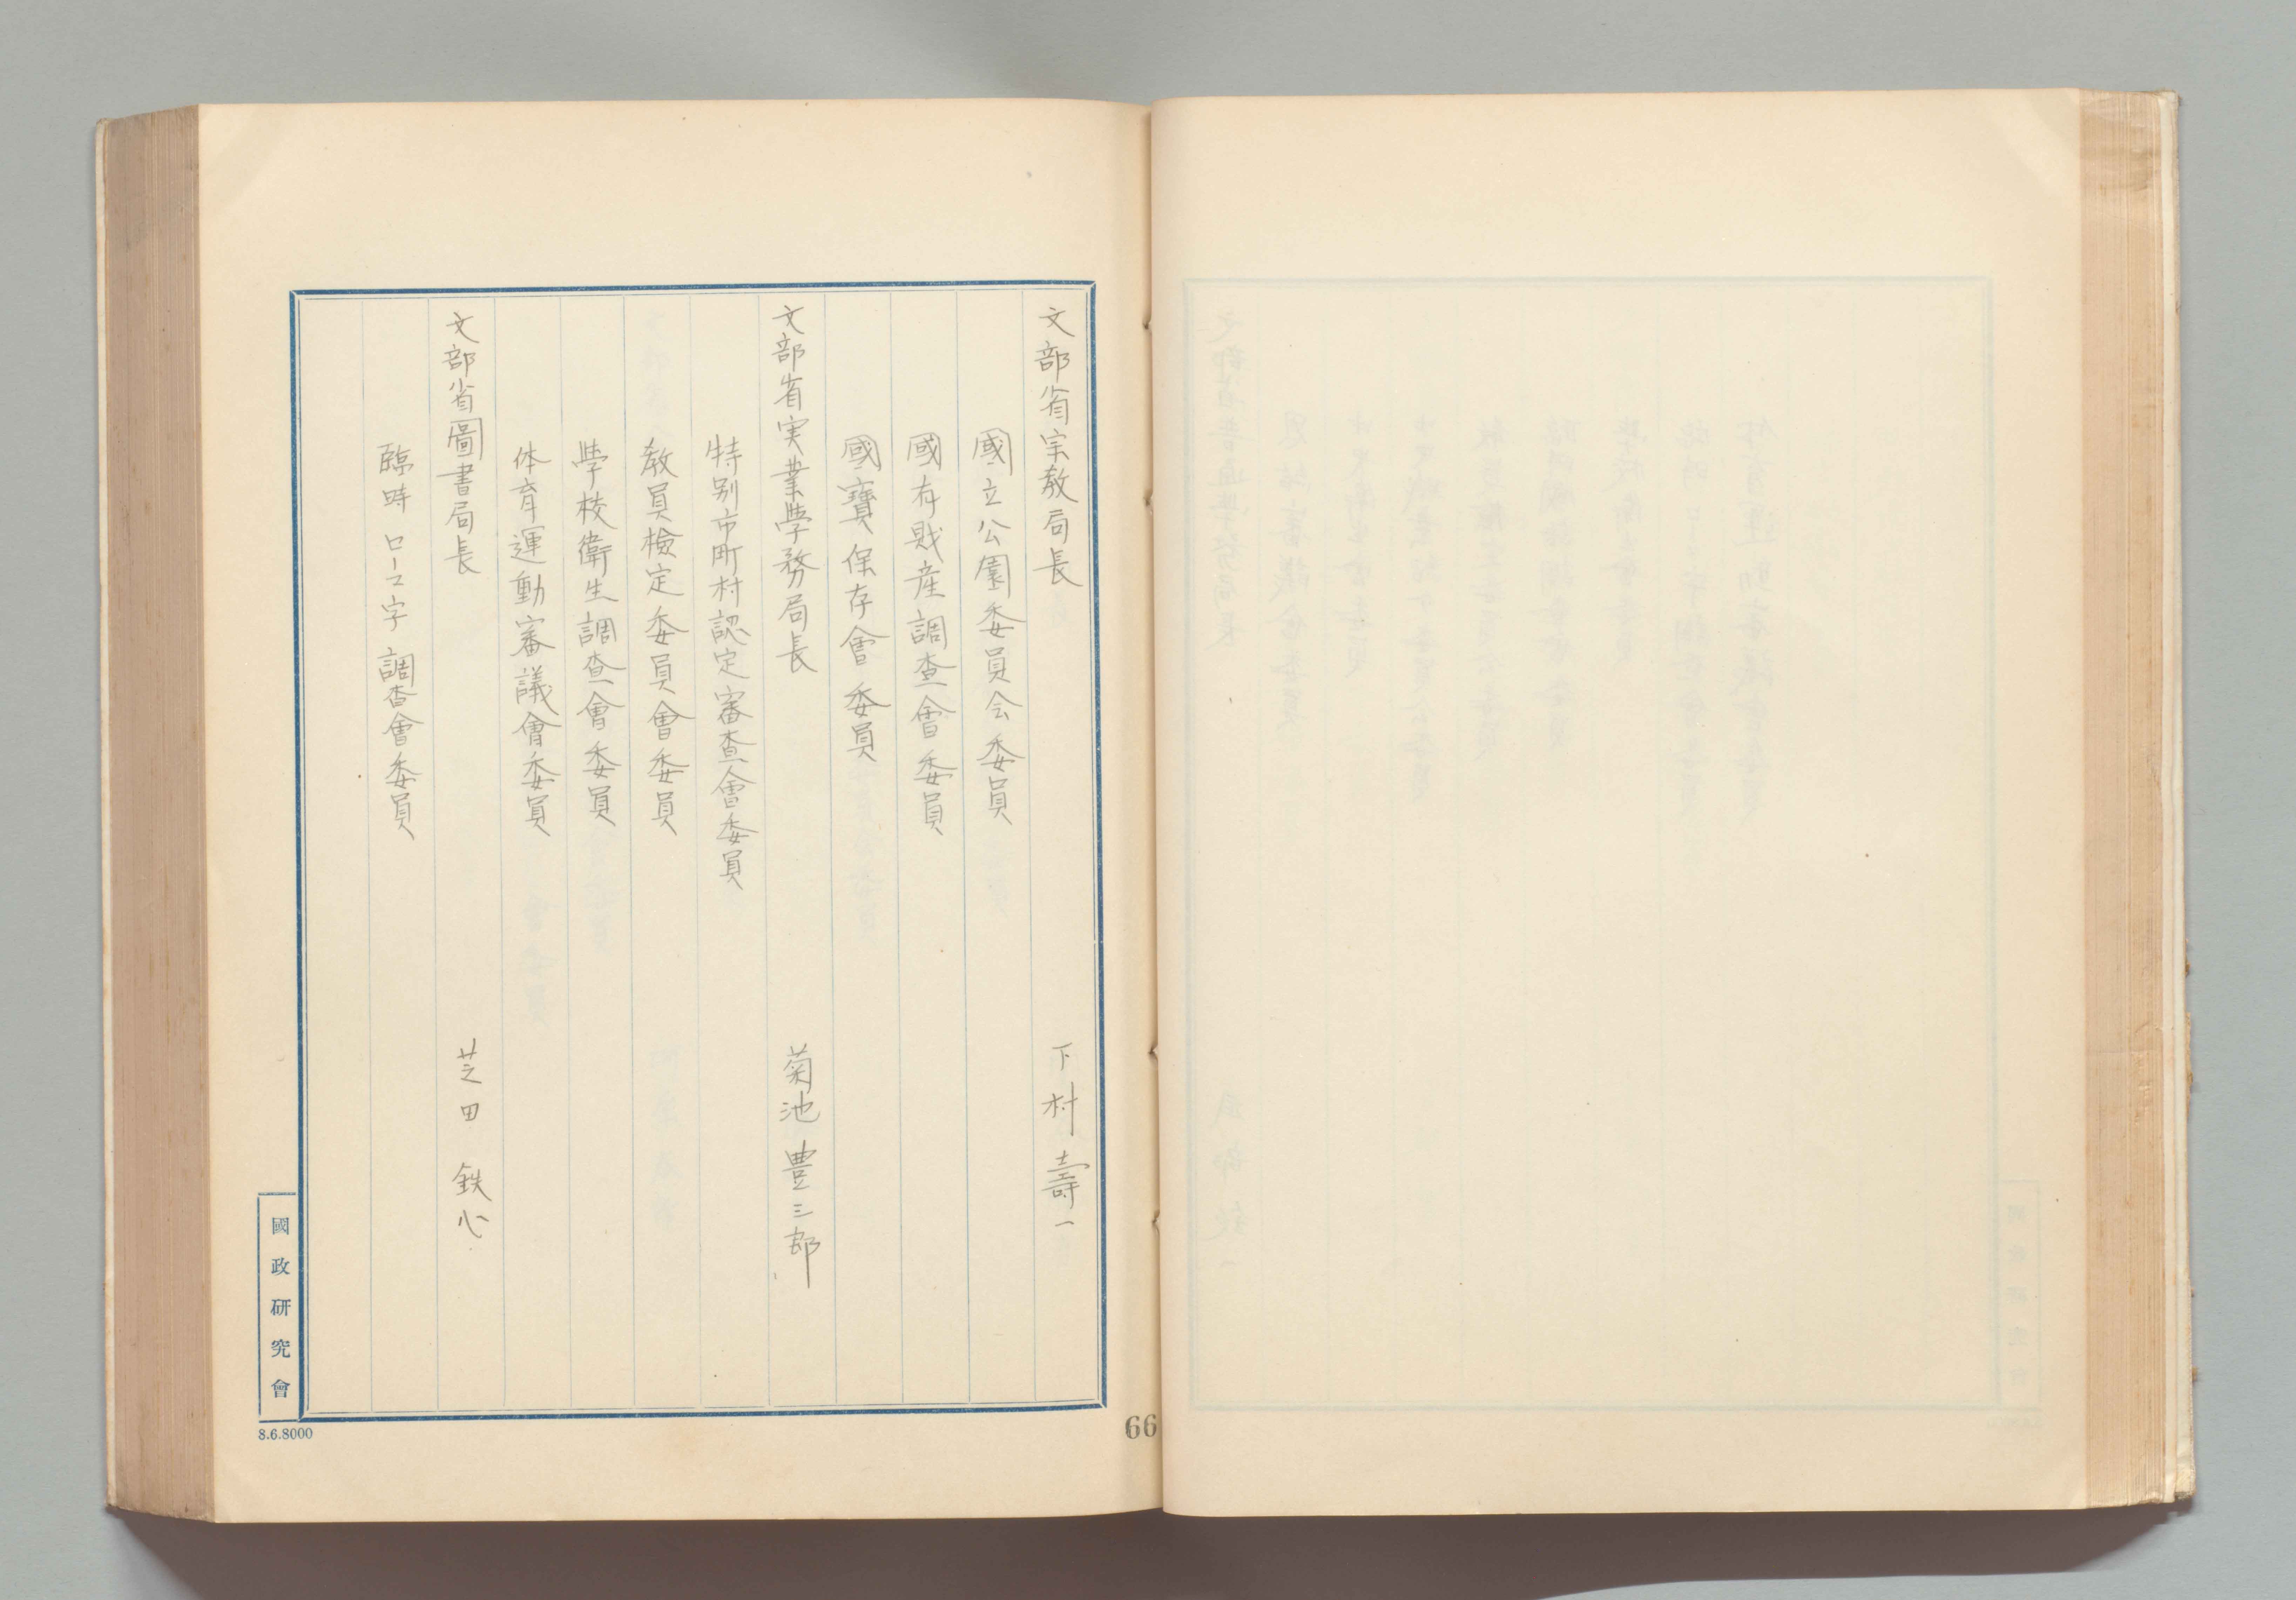 文部省宗教局長 下村壽一
國立公園委員会委員
國有財産調査會委員
國寶保存會委員
文部省実業學務局長 菊池豊三郎
特別市町村認定審査會委員
教員檢定委員會委員
學校衛生調査會委員
体育運動審議會委員
文部省圖書局長 芝田鉄心
臨時ローマ字調査會委員
國政研究會
8.6.8000
66